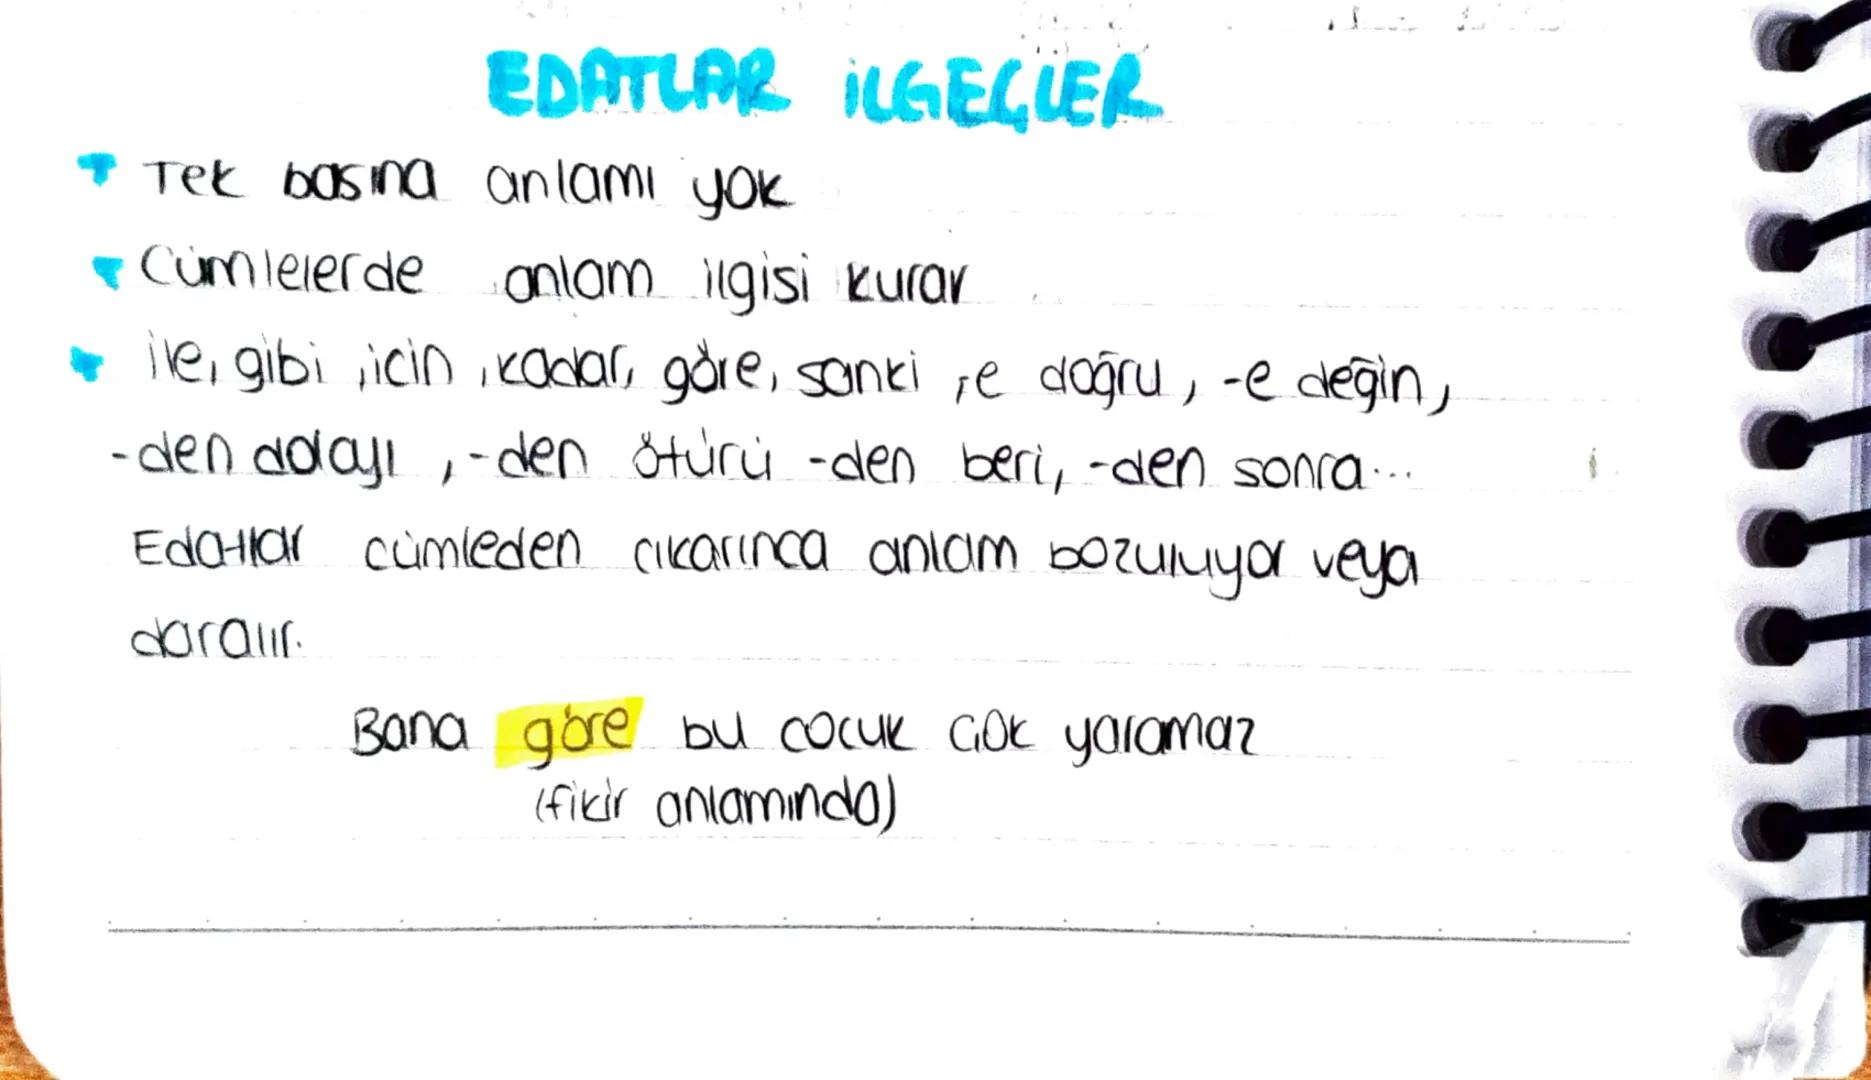 EDATLAR İLGEÇLER
Tek basına anlamı yok
Cümlelerde anlam ilgisi kurar
ile, gibi, icin, kadar, göre, sanki, e doğru, -e değin,
-den dolayı, -den ötürü -den beri, -den sonra...
Edatlar cümleden cıkarınca anlam bozuluyor veya
daralır.
Bana göre bu cocuk çok yaramaz
(fikir anlamında)